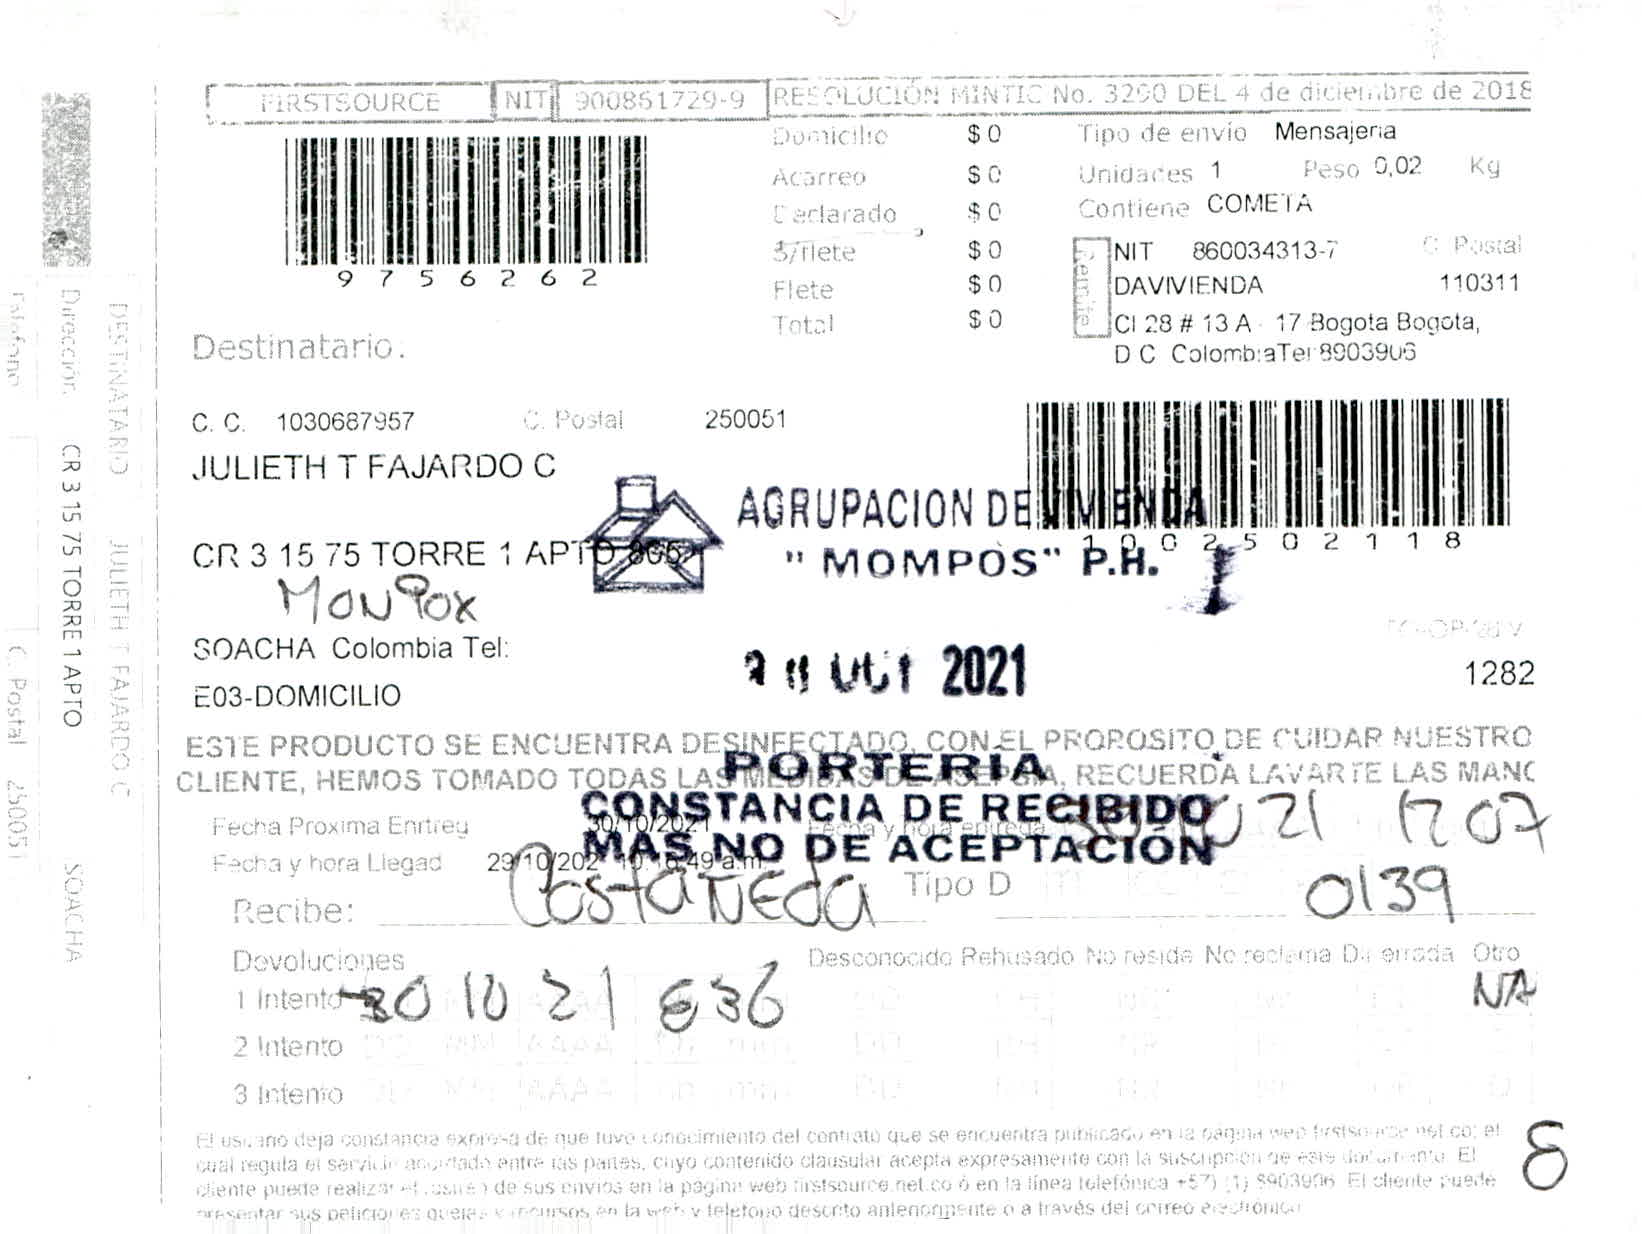 FIRSTSOURCE NIT 900851729-9 RESOLUCIÓN MINTIC No. 3290 DEL 4 de diciembre de 2018
9756262
Domicilio $ 0
Acarreo $ 0
Declarado $ 0
S/flete $ 0
Flete $ 0
Total $ 0
Tipo de envío Mensajeria
Unidades 1 Peso 0,02 Kg
Contiene COMETA
Remite
NIT 860034313-7 C. Postal
DAVIVIENDA 110311
Cl 28 # 13 A - 17 Bogota Bogota,
D C Colombia Tel 8903906
Destinatario:
C. C. 1030687957 C. Postal 250051
JULIETH T FAJARDO C
1002502118
AGRUPACION DE VIVIENDA
"MOMPÓS" P.H.
CR 3 15 75 TORRE 1 APTO
MONPOX
SOACHA Colombia Tel:
OCT 2021
1282
E03-DOMICILIO
ESTE PRODUCTO SE ENCUENTRA DESINFECTADO, CON EL PROPOSITO DE CUIDAR NUESTRO
CLIENTE, HEMOS TOMADO TODAS LAS MEDIDAS DE ASEPSIA, RECUERDA LAVARTE LAS MANO
PORTERIA
CONSTANCIA DE RECIBIDO
MAS NO DE ACEPTACIÓN
Fecha Proxima Enrtreg 30/10/2021 Fecha y hora entrega 21 1207
Fecha y hora Llegad 29/10/202
Recibe: Castañeda Tipo D 0139
Devoluciones Desconocido Rehusado No reside No reclama Dir errada Otro
1 Intento 30 10 21 836 NA
2 Intento DD MM AAAA hh mm
3 Intento DD MM AAAA hh mm
El usuario deja constancia expresa de que tuvo conocimiento del contrato que se encuentra publicado en la pagina web firstsource.net.co; el
cual regula el servicio acordado entre las partes, cuyo contenido clausular acepta expresamente con la suscripcion de este documento. El
cliente puede realizar el rastreo de sus envios en la pagina web firstsource.net.co ó en la línea telefónica +57) (1) 8903906. El cliente puede
presentar sus peticiones quejas y recursos en la web y telefono descrito anteriormente o a través del correo electrónico
8
DESTINATARIO JULIETH T FAJARDO C
Dirección. CR 3 15 75 TORRE 1 APTO SOACHA
Telefono C. Postal 250051